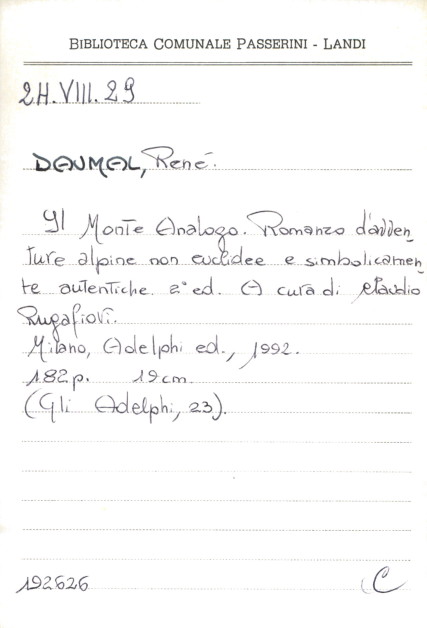 BIBLIOTECA COMUNALE PASSERINI - LANDI
2H.VIII.29
DAUMAL, René.
Il Monte Analogo. Romanzo d'avven
ture alpine non euclidee e simbolicamen
te autentiche. 2ª ed. A cura di Claudio
Rugafiori.
Milano, Adelphi ed., 1992.
182 p. 19 cm.
(Gli Adelphi, 23).
192626
C